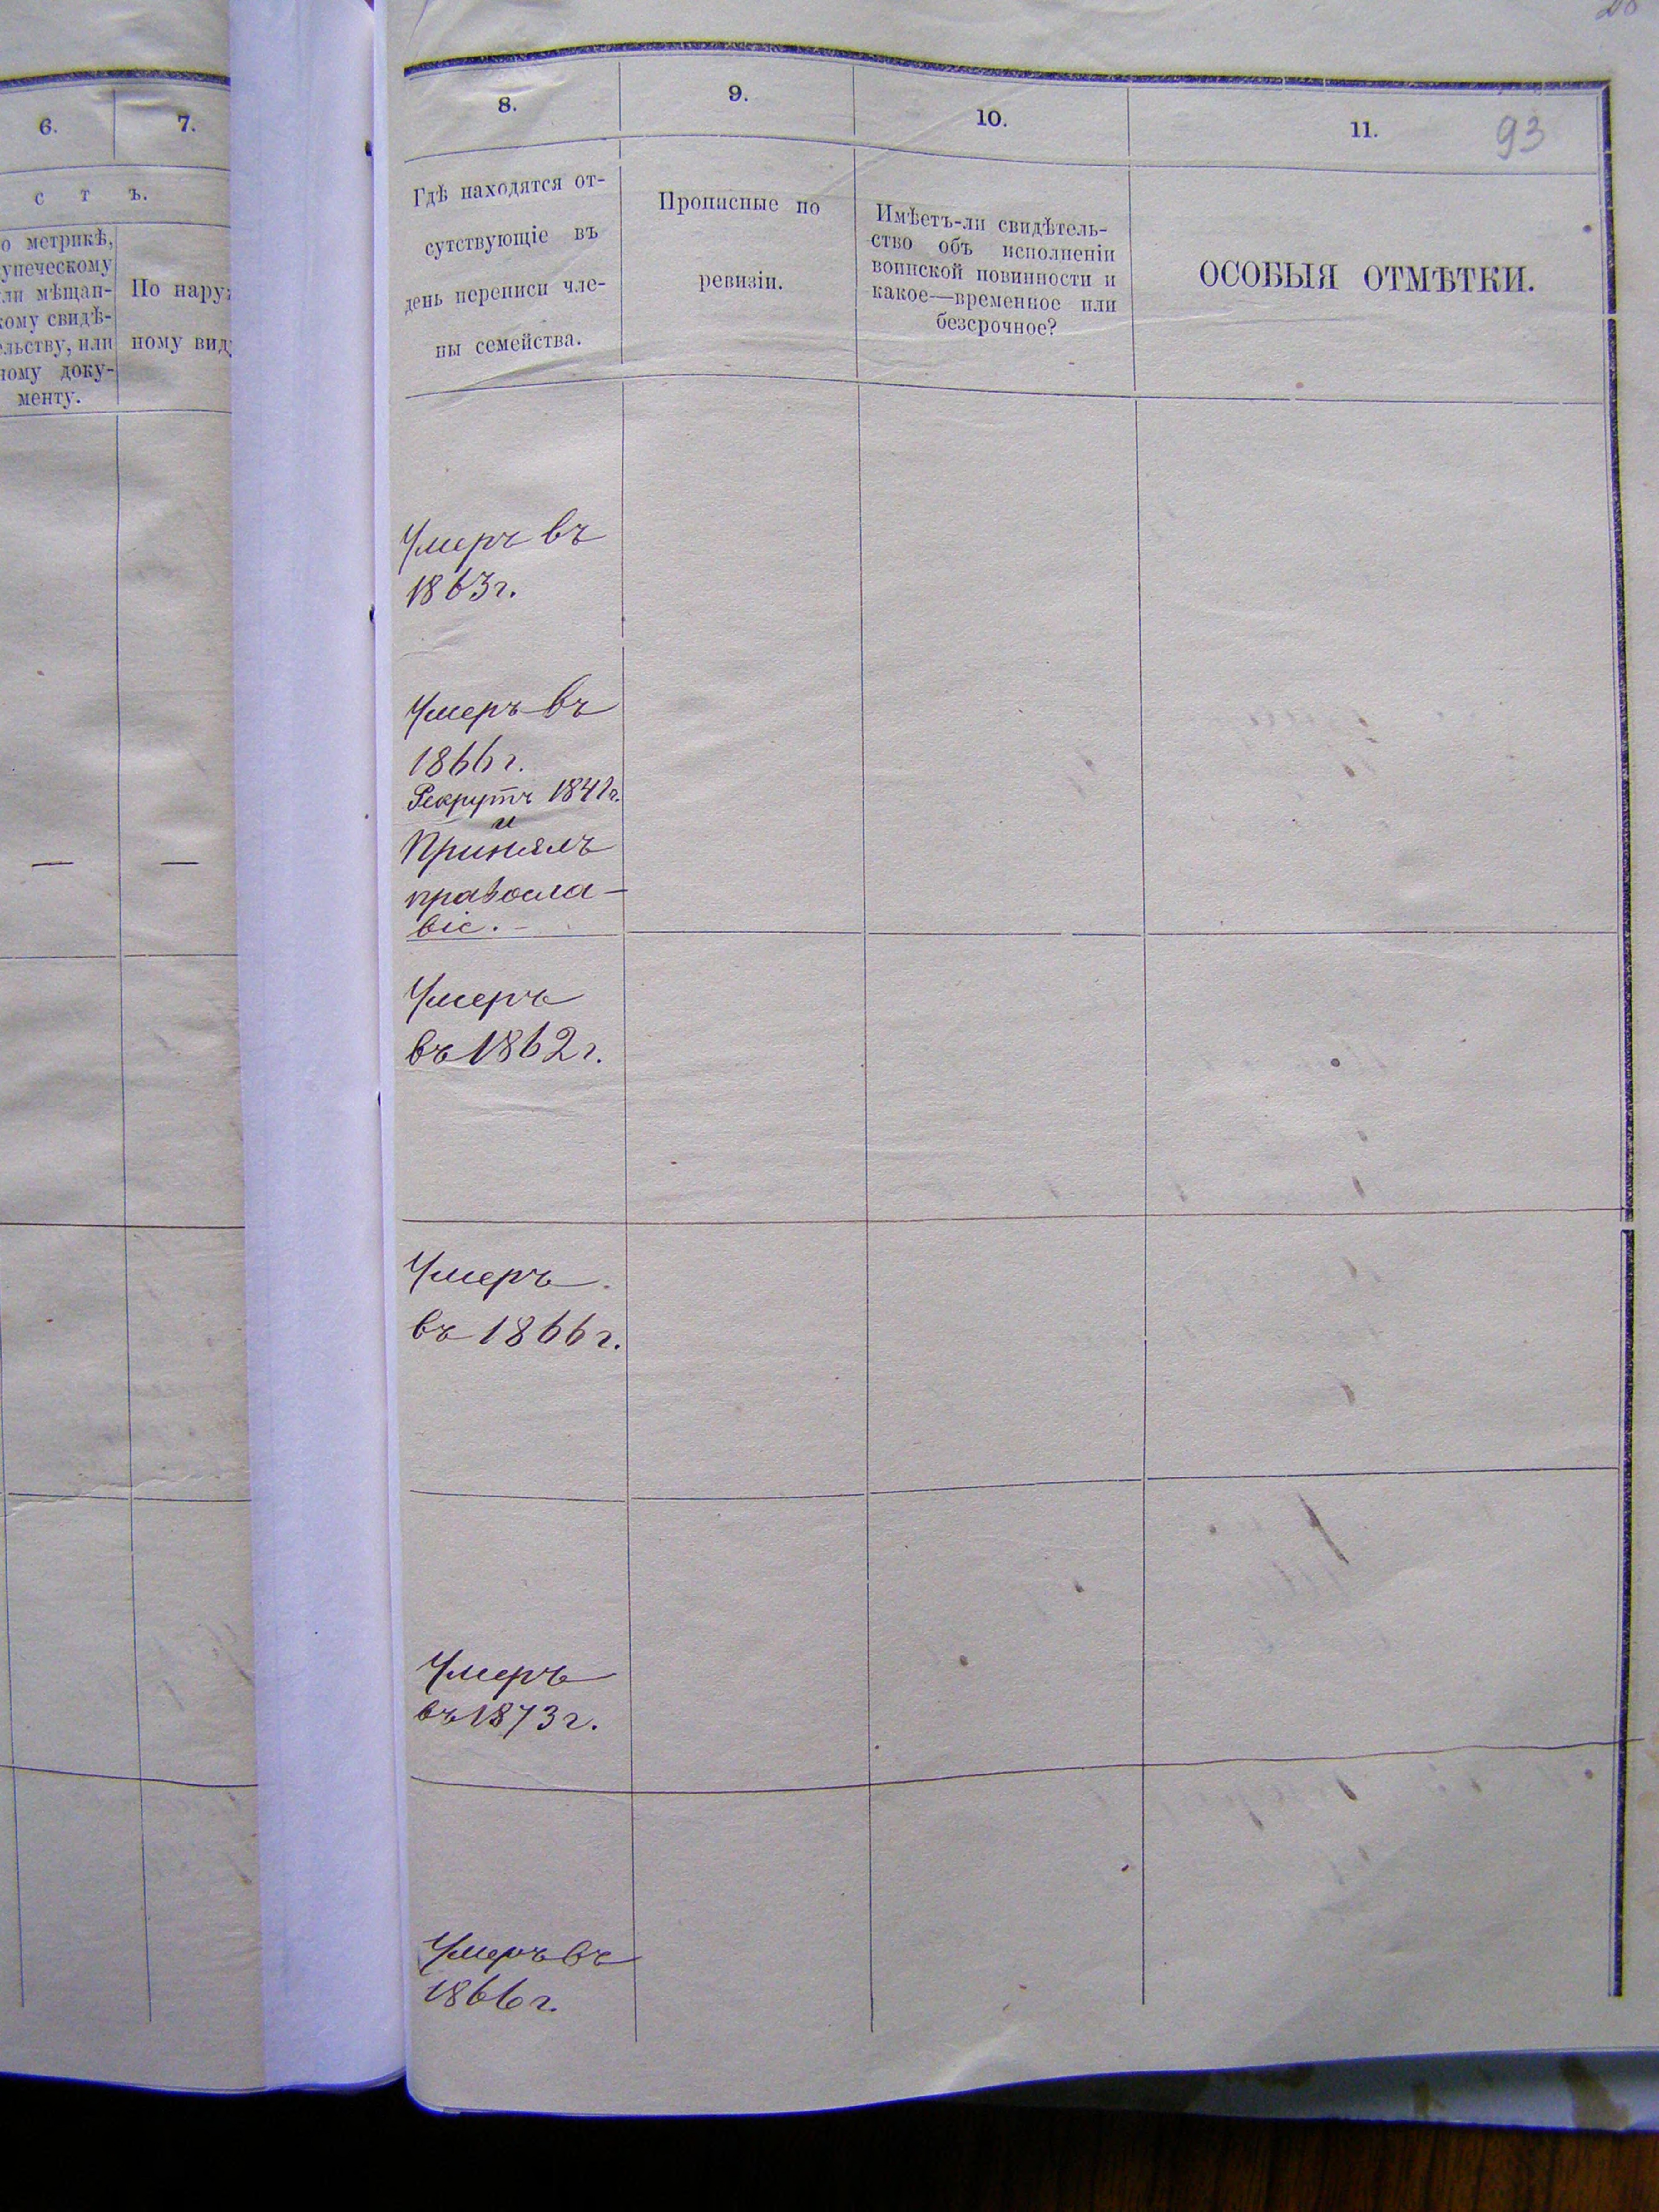 6.
7.
с т ъ.
о метрикѣ,
упеческому
ли мѣщан-
кому свидѣ-
ельству, или
ному доку-
менту.
По наруж
ному вид
8.
9.
10.
11.
93
Гдѣ находятся от-
сутствующіе въ
день переписи чле-
ны семейства.
Прописные по
ревизіи.
Имѣетъ-ли свидѣтель-
ство объ исполненіи
воинской повинности и
какое—временное или
безсрочное?
ОСОБЫЯ ОТМѢТКИ.
Умеръ въ
1863г.
Умеръ въ
1866г.
Рекрутъ 1841г.
и
Принялъ
правосла-
віе.-
— —
Умеръ
въ 1862г.
Умеръ
въ 1866г.
Умеръ
въ 1873г.
Умеръ въ
1866г.